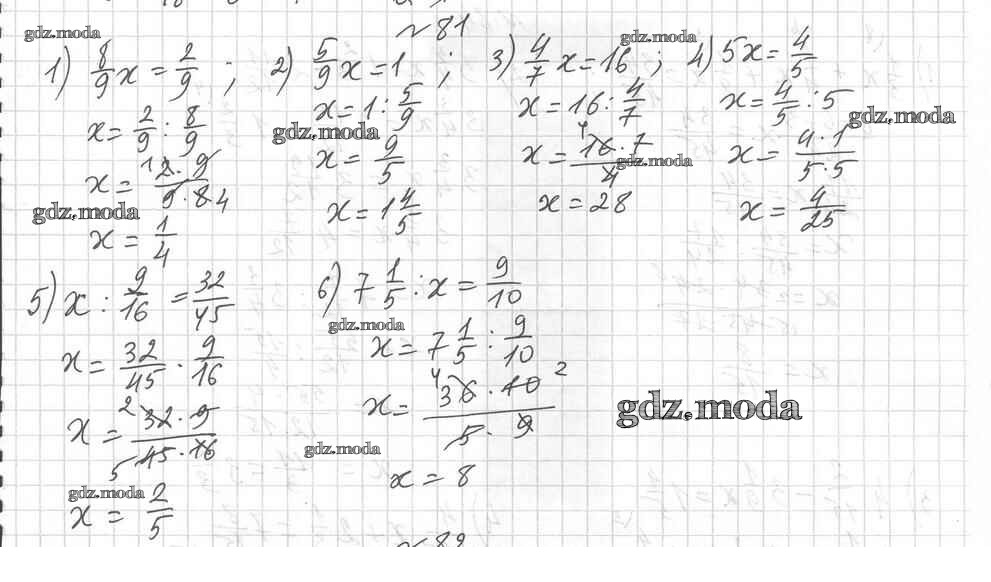 №81
1) 8/9 x = 2/9 ;
x = 2/9 : 8/9
x = 1 2·9 / 9·8 4
x = 1/4
2) 5/9 x = 1 ;
x = 1 : 5/9
x = 9/5
x = 1 4/5
3) 4/7 x = 16 ;
x = 16 : 4/7
x = 4 16·7 / 4
x = 28
4) 5x = 4/5
x = 4/5 : 5
x = 4·1 / 5·5
x = 4/25
5) x : 9/16 = 32/45
x = 32/45 · 9/16
x = 2 32·9 / 5 45·16
x = 2/5
6) 7 1/5 : x = 9/10
x = 7 1/5 : 9/10
x = 4 36·10 2 / 5·9
x = 8
№82
gdz.moda
gdz.moda
gdz.moda
gdz.moda
gdz.moda
gdz.moda
gdz.moda
gdz.moda
gdz.moda
gdz.moda